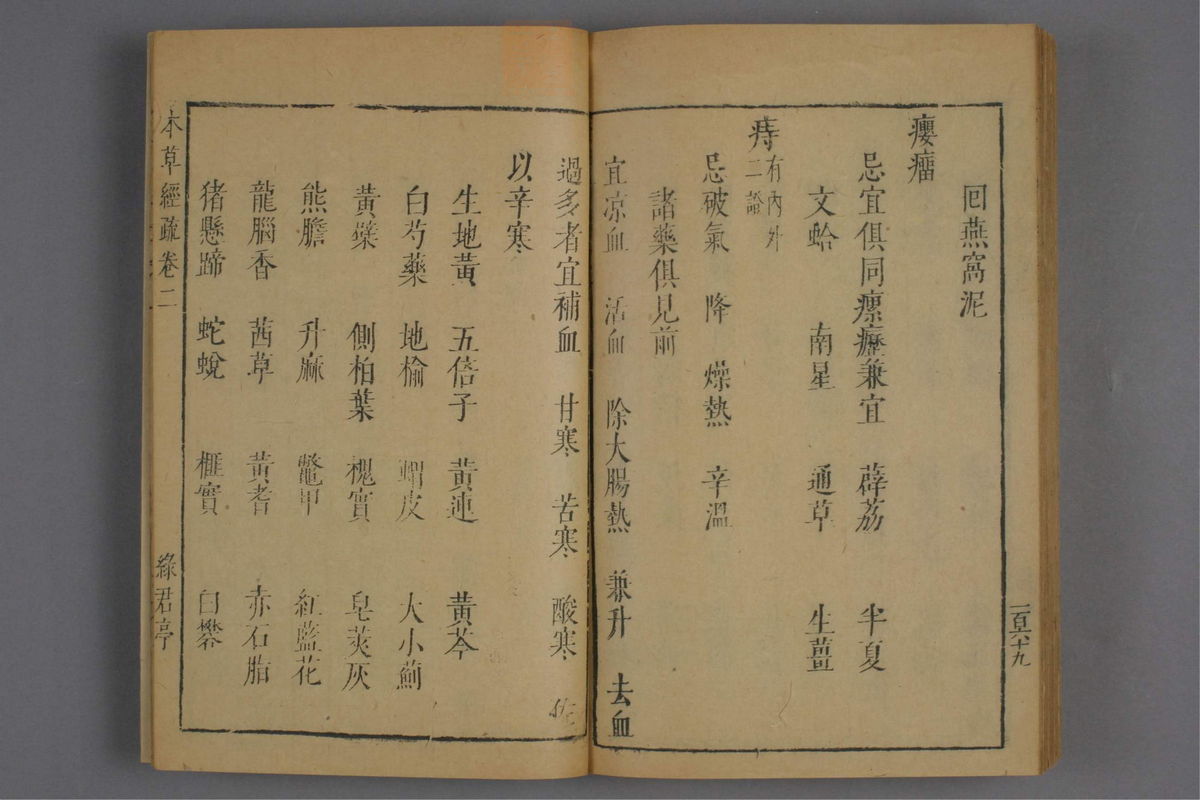 回燕窩泥
癭瘤
忌宜俱同瘰癧兼宜 薜荔 半夏
文蛤 南星 通草 生薑
痔有內外二證
忌破氣 降 燥熱 辛溫
諸藥俱見前
宜凉血 活血 除大腸熱 兼升 去血
一百六十九
過多者宜補血 甘寒 苦寒 酸寒 佐
以辛寒
生地黃 五倍子 黃連 黃芩
白芍藥 地榆 蝟皮 大小薊
黃蘗 側柏葉 槐實 皂莢灰
熊膽 升麻 鼈甲 紅藍花
龍腦香 茜草 黃耆 赤石脂
猪懸蹄 蛇蛻 榧實 白礬
本草經疏卷二 綠君亭